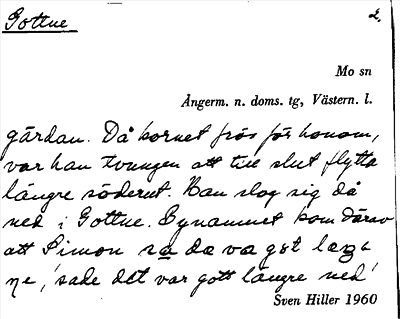 Gottne
2.
Mo sn
Ångerm. n. doms. tg, Västern. l.
gärdan. Då kornet frös för honom,
var han tvungen att till slut flytta
längre söderut. Han slog sig då
ned i Gottne. Bynamnet kom därav
att Simon sa da va gɷt
ne, 'sade det var gott längre ned'
Sven Hiller 1960